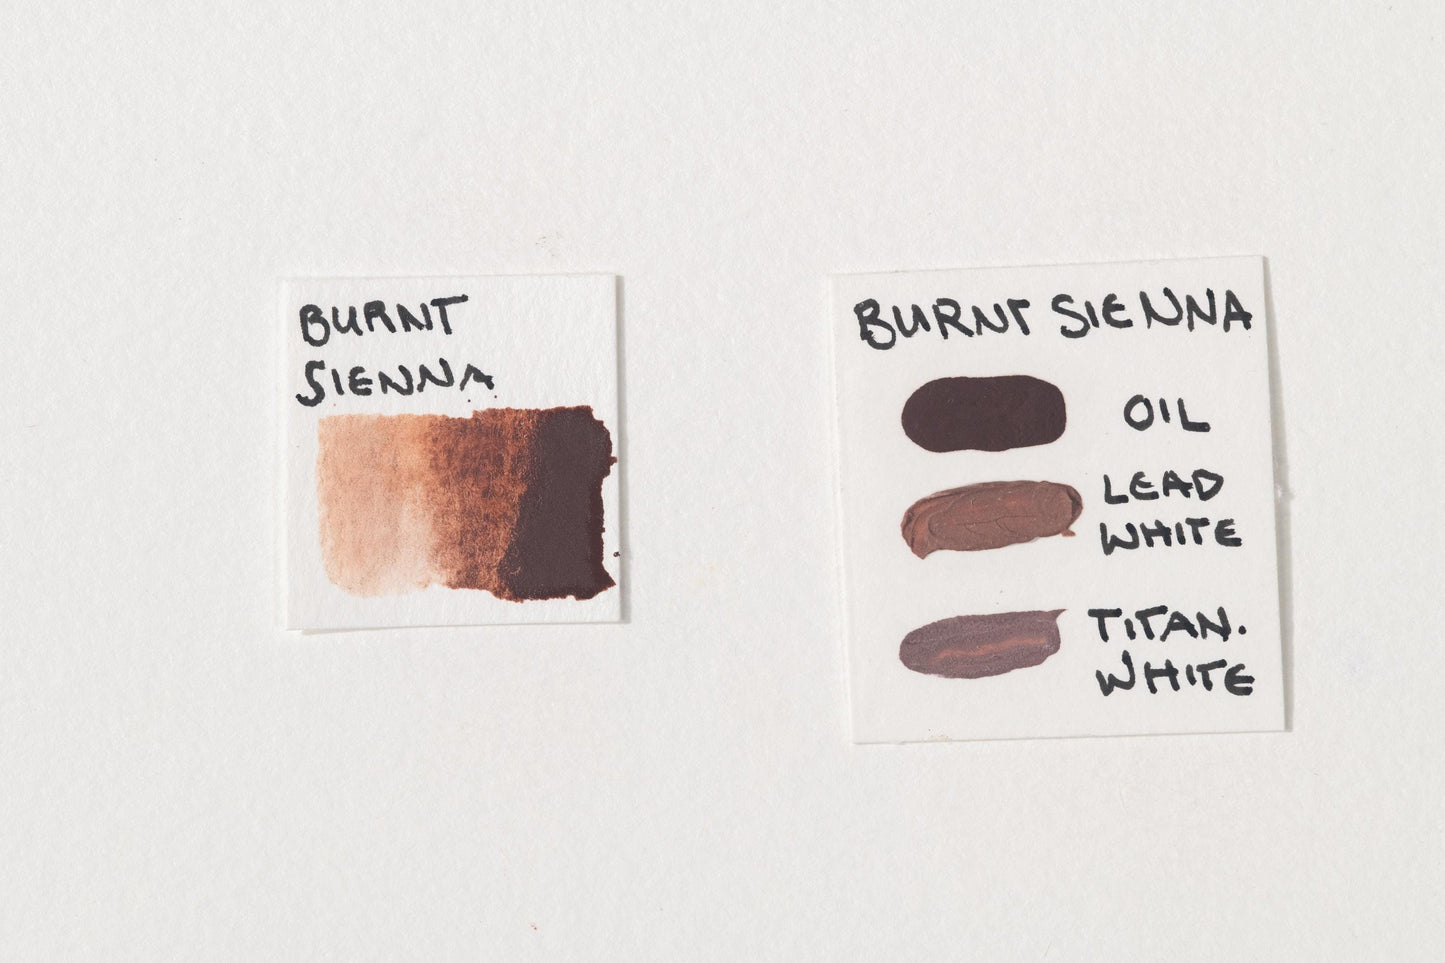 BURNT
SIENNA
BURNT SIENNA
OIL
LEAD
WHITE
TITAN.
WHITE